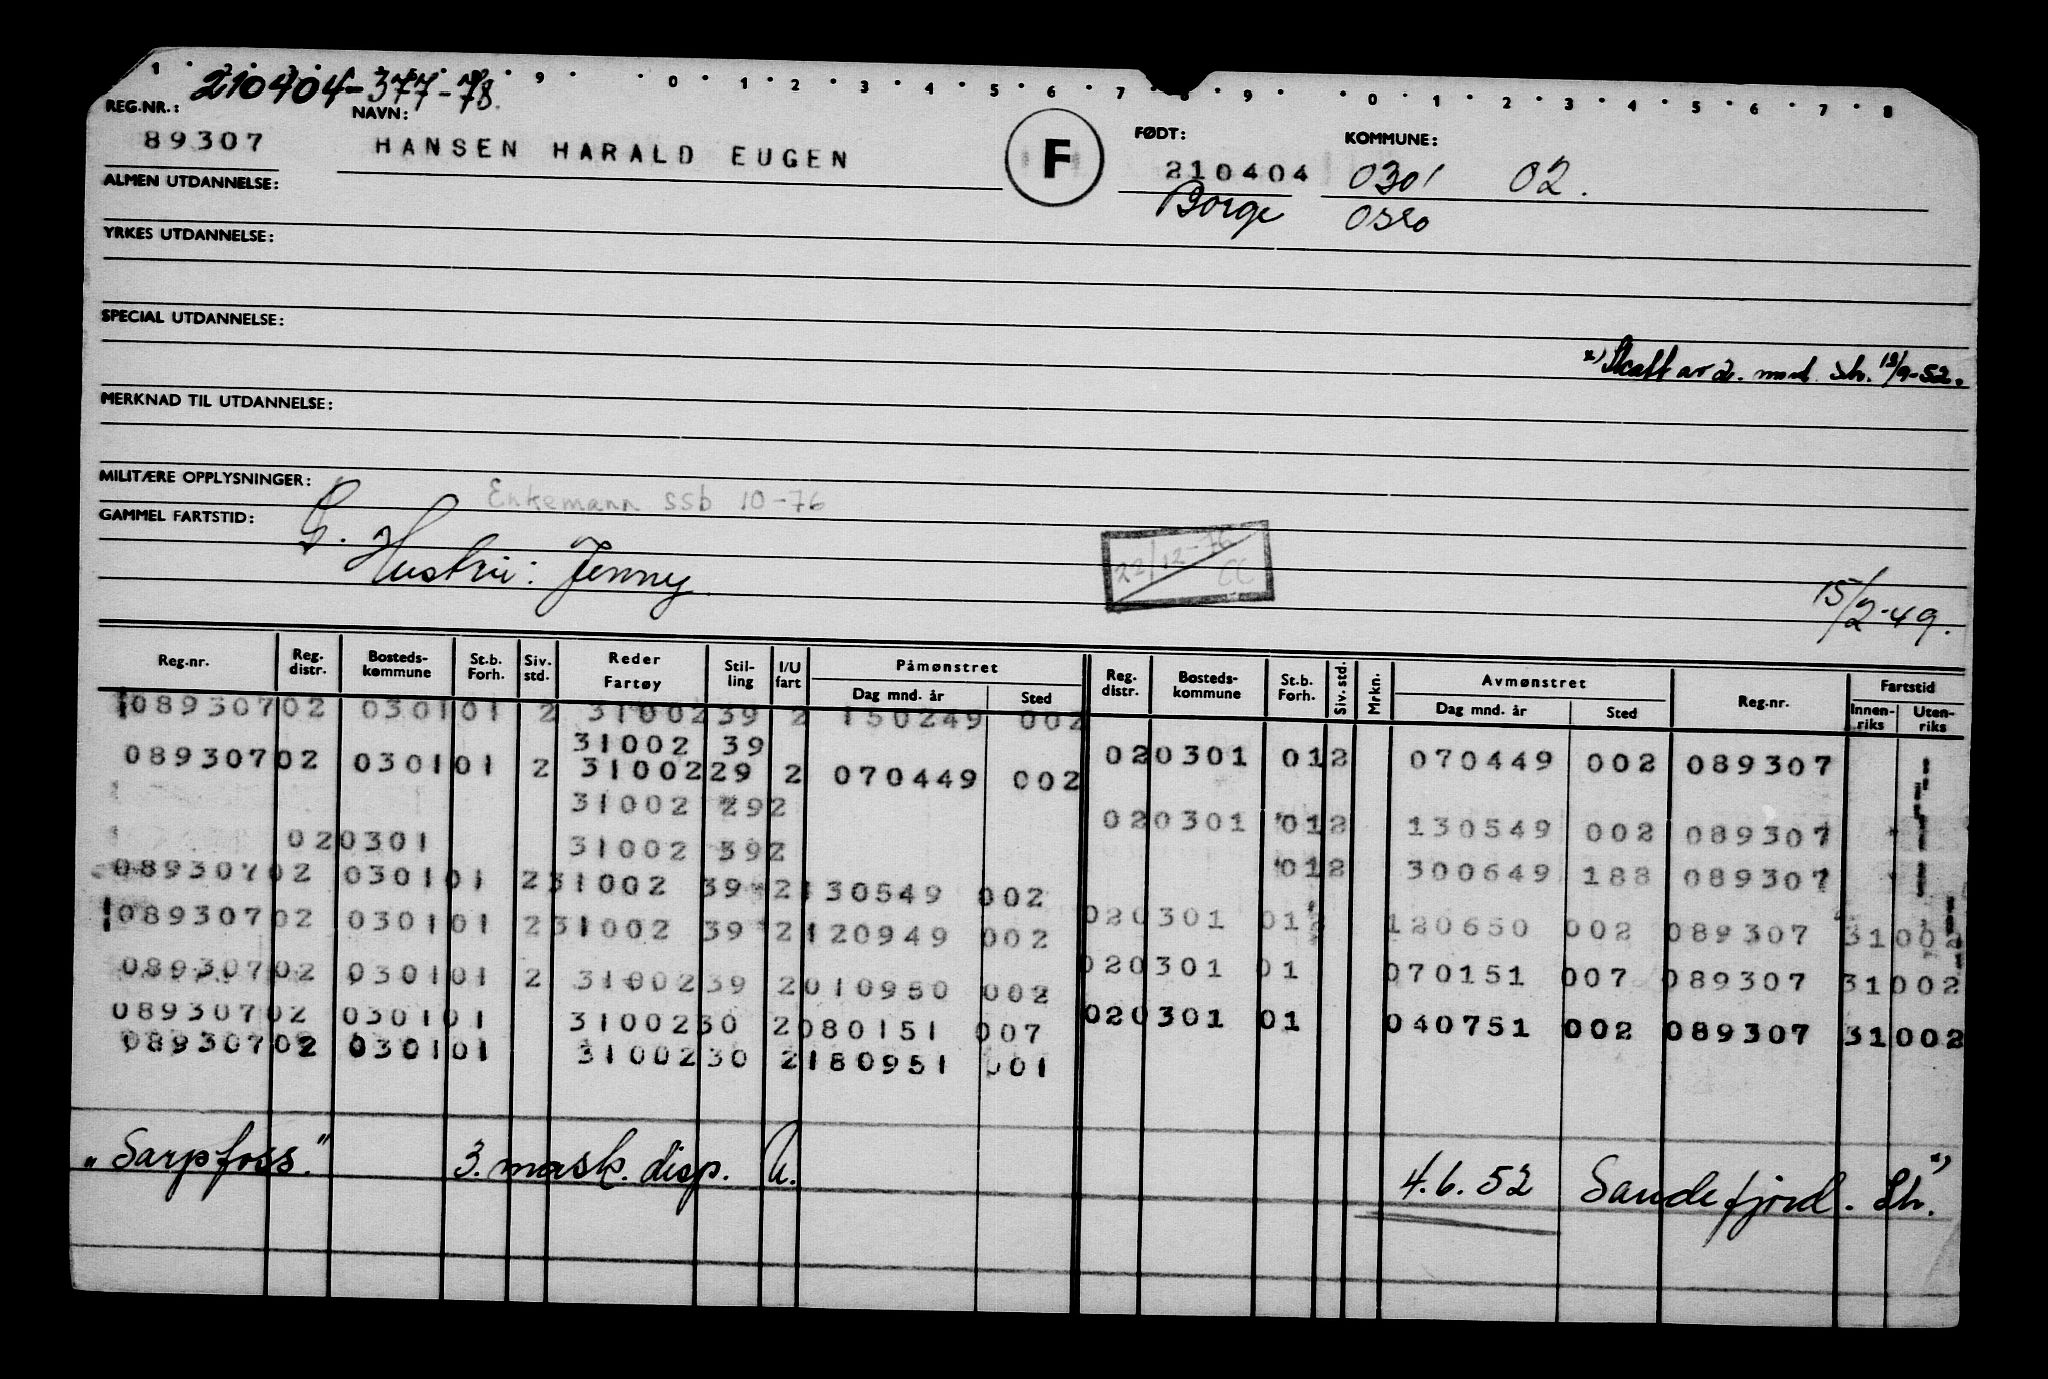 1 9 0 1 2 3 4 5 6 7 8 9 0 1 2 3 4 5 6 7 8
210404-377-78.
REG.NR.: NAVN: FØDT: KOMMUNE:
89307 HANSEN HARALD EUGEN F 210404 0301 02.
Borge Oslo
ALMEN UTDANNELSE:
YRKES UTDANNELSE:
SPECIAL UTDANNELSE:
x) Skatt av 2. mnd. Sh. 12/9-52.
MERKNAD TIL UTDANNELSE:
MILITÆRE OPPLYSNINGER:
Enkemann ssb 10-76
GAMMEL FARTSTID: G. Hustru: Jenny.
22/12-76 CC
15/2-49.
Reg.nr. Reg. distr. Bosteds-kommune St.b. Forh. Siv. std. Reder Fartøy Stil-ling I/U fart Påmønstret Dag mnd. år Sted Reg. distr. Bosteds-kommune St.b. Forh. Siv. std. Mrkn. Avmønstret Dag mnd. år Sted Reg.nr. Fartstid Innen-riks Uten-riks
089307 02 0301 01 2 31002 39 2 150249 002
31002 39 02 0301 01 2 070449 002 089307
089307 02 0301 01 2 31002 29 2 070449 002
31002 29 2 02 0301 01 2 130549 002 089307
02 0301 31002 39 2 01 2 300649 188 089307
089307 02 0301 01 2 31002 39 2 130549 002
089307 02 0301 01 2 31002 39 2 120949 002 02 0301 01 2 120650 002 089307 31002
089307 02 0301 01 2 31002 39 2 010950 002 02 0301 01 070151 007 089307 31002
089307 02 0301 01 31002 30 2 080151 007 02 0301 01 040751 002 089307 31002
089307 02 0301 01 31002 30 2 180951 001
"Sarpfoss." 3. mask. disp. U. 4.6.52 Sandefjord. Sh. x)